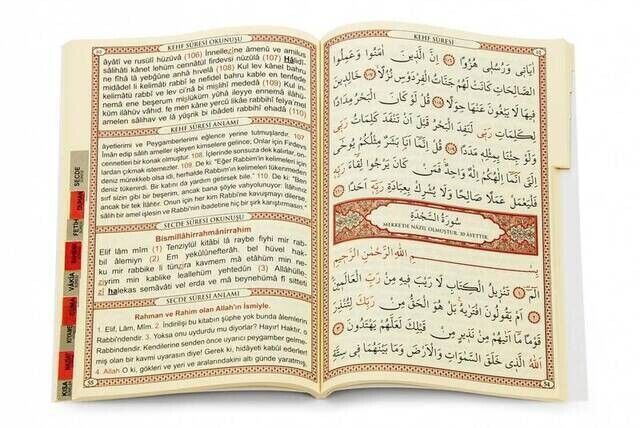 KEHF SÛRESİ OKUNUŞU
âyâtî ve rusulî hüzüvâ (106) İnnellezîne âmenû ve amilus
sâlihâti kânet lehüm cennâtül firdevsi nüzülâ (107) Hâlidî-
ne fîhâ lâ yebğûne anhâ hıvelâ (108) Kul lev kânel bahru
midâdel li kelimâti rabbî le nefidel bahru kable en tenfede
kelimâtü rabbî ve lev ci'nâ bi mislihî mededâ (109) Kul in-
nemâ ene beşerum mislüküm yûhâ ileyye ennemâ ilâhü-
küm ilâhüv vâhid, fe men kâne yercû likâe rabbihî felya'mel
amelen sâlihav ve lâ yüşrik bi ibâdeti rabbihî ehadâ (110)
KEHF SÛRESİ ANLAMI
âyetlerimi ve Peygamberlerimi eğlence yerine tutmuşlardır. 107.
İman edip sâlih ameller işleyen kimselere gelince; Onlar için Firdevs
cennetleri bir konak olmuştur. 108. İçlerinde sonsuza dek kalırlar, on-
lardan çıkmak istemezler. 109. De ki: "Eğer Rabbim'in kelimeleri için
deniz mürekkeb olsa idi, herhalde Rabbim'in kelimeleri tükenmeden
deniz tükenirdi. Bir katını da yardım getirsek bile." 110. De ki: "Ben
sırf sizin gibi bir beşerim, ancak bana şöyle vahyolunuyor: İlâhınız
ancak bir tek İlâhdır. Onun için her kim Rabbi'ne kavuşmayı dilerse,
sâlih bir amel işlesin ve Rabbi'nin ibadetine hiç bir şirk karıştırmasın."
SECDE SÛRESİ OKUNUŞU
Bismillâhirrahmânirrahîm
Elif lâm mîm (1) Tenzîylül kitâbi lâ raybe fîyhi mir rab-
bil âlemîyn (2) Em yekûlûnefterâh, bel hüvel hak-
ku mir rabbike li tünzira kavmem mâ etâhüm min ne-
ziyrim min kablike leallehüm yehtedûn (3) Allâhülle-
zî halekas semâvâti vel erda ve mâ beynehümâ fî sitteti
SECDE SÛRESİ ANLAMI
Rahman ve Rahim olan Allah'ın İsmiyle.
1. Elif, Lâm, Mîm. 2. İndirilişi bu kitabın şüphe yok bunda âlemlerin
Rabbi'ndendir. 3. Yoksa onu uydurdu mu diyorlar? Hayır! Haktır, o
Rabbindendir. Kendilerine senden önce uyarıcı peygamber gelme-
miş olan bir kavmi uyarasın diye! Gerek ki, hidâyeti kabül ederler!
4. Allah O ki, gökleri ve yeri ve aralarındakini altı günde yaratmış,
SECDE
DUHAN
FETİH
VÂKIA
KISA
KEHF SÛRESİ
اٰيَاتٖى وَرُسُلٖى هُزُوًا ﴿١٠٦﴾ اِنَّ الَّذٖينَ اٰمَنُوا وَعَمِلُوا
الصَّالِحَاتِ كَانَتْ لَهُمْ جَنَّاتُ الْفِرْدَوْسِ نُزُلًا ﴿١٠٧﴾ خَالِدٖينَ
فٖيهَا لَا يَبْغُونَ عَنْهَا حِوَلًا ﴿١٠٨﴾ قُلْ لَوْ كَانَ الْبَحْرُ مِدَادًا
لِكَلِمَاتِ رَبّٖى لَنَفِدَ الْبَحْرُ قَبْلَ اَنْ تَنْفَدَ كَلِمَاتُ رَبّٖى
وَلَوْ جِئْنَا بِمِثْلِهٖ مَدَدًا ﴿١٠٩﴾ قُلْ اِنَّمَا اَنَا بَشَرٌ مِثْلُكُمْ يُوحٰى
اِلَىَّ اَنَّمَا اِلٰهُكُمْ اِلٰهٌ وَاحِدٌ فَمَنْ كَانَ يَرْجُوا لِقَاءَ رَبِّهٖ
فَلْيَعْمَلْ عَمَلًا صَالِحًا وَلَا يُشْرِكْ بِعِبَادَةِ رَبِّهٖ اَحَدًا ﴿١١٠﴾
سُورَةُ السَّجْدَةِ
MEKKE'DE NÂZİL OLMUŞTUR. 30 ÂYETTİR.
بِسْمِ اللهِ الرَّحْمٰنِ الرَّحٖيمِ
الٓمٓ ﴿١﴾ تَنْزٖيلُ الْكِتَابِ لَا رَيْبَ فٖيهِ مِنْ رَبِّ الْعَالَمٖينَ
﴿٢﴾ اَمْ يَقُولُونَ افْتَرٰيهُ بَلْ هُوَ الْحَقُّ مِنْ رَبِّكَ لِتُنْذِرَ
قَوْمًا مَا اَتٰيهُمْ مِنْ نَذٖيرٍ مِنْ قَبْلِكَ لَعَلَّهُمْ يَهْتَدُونَ ﴿٣﴾
اَللهُ الَّذٖى خَلَقَ السَّمٰوَاتِ وَالْاَرْضَ وَمَا بَيْنَهُمَا فٖى سِتَّةِ
55
54